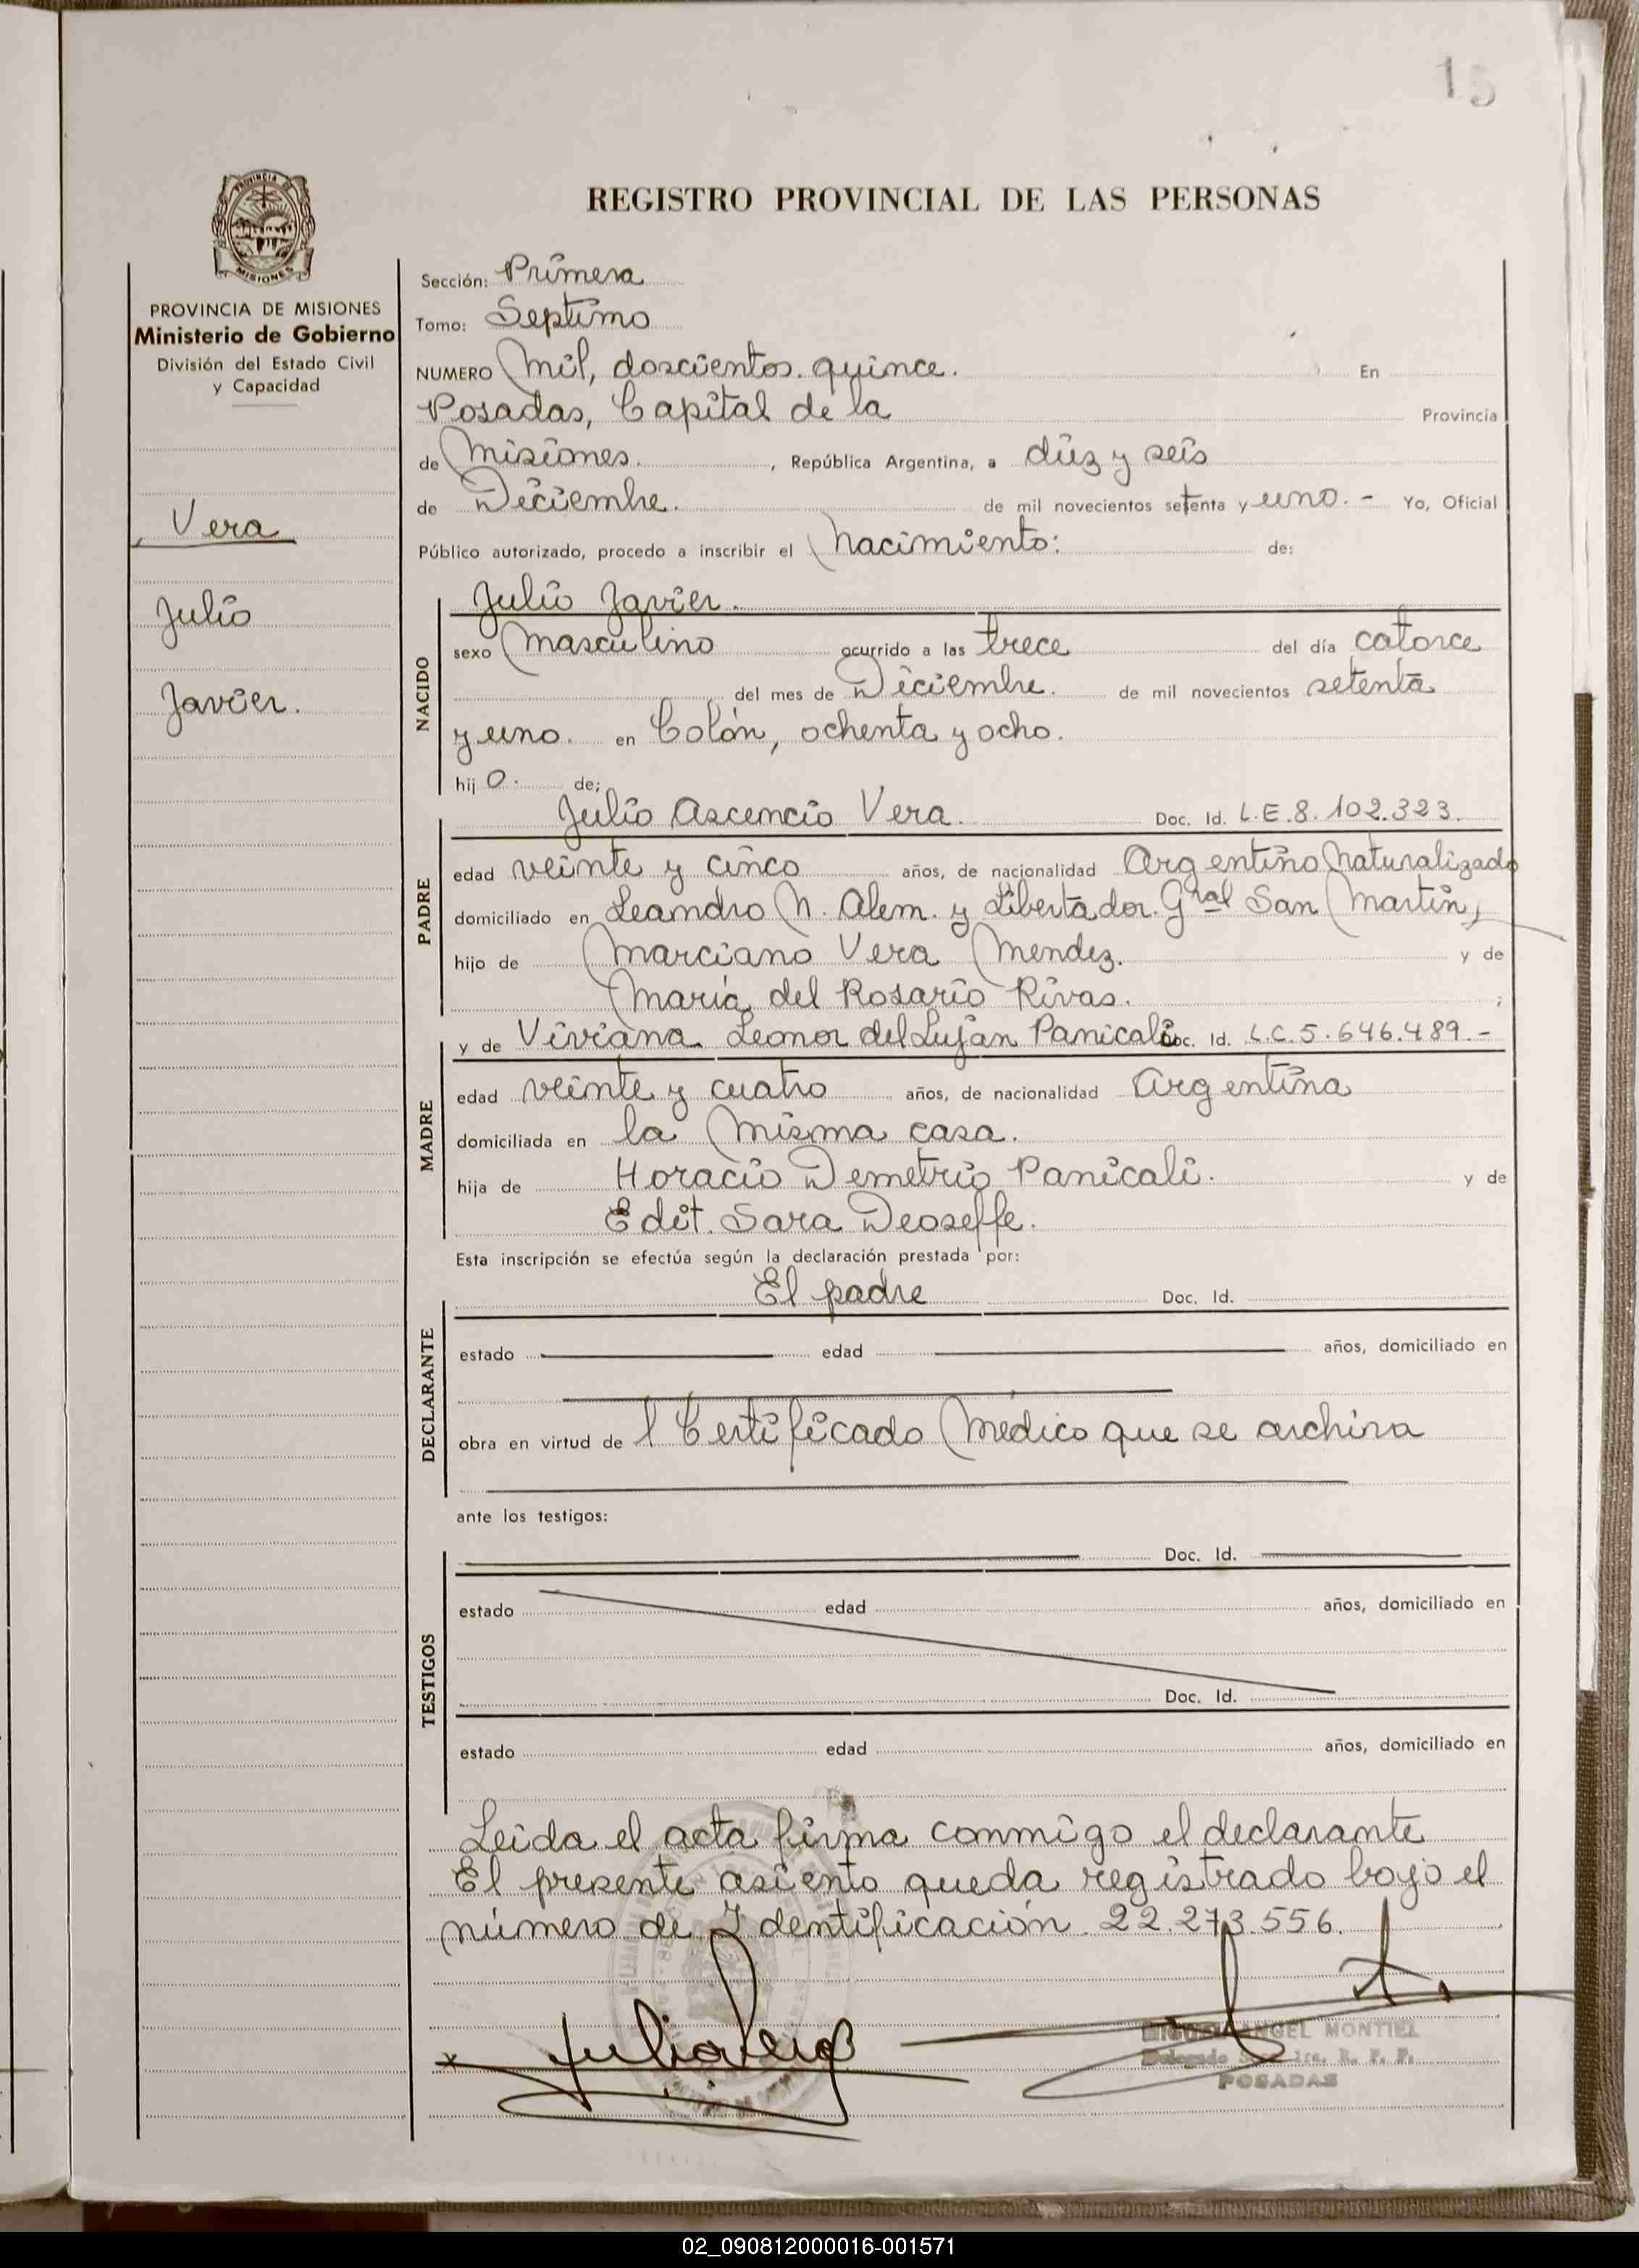 15
REGISTRO PROVINCIAL DE LAS PERSONAS
PROVINCIA DE
MISIONES
PROVINCIA DE MISIONES
Ministerio de Gobierno
División del Estado Civil
y Capacidad
Vera
Julio
Javier.
Sección: Primera
Tomo: Septimo
NUMERO Mil, doscientos quince. En
Posadas, Capital de la Provincia
de Misiones. , República Argentina, a diez y seis
de Diciembre. de mil novecientos setenta y uno. - Yo, Oficial
Público autorizado, procedo a inscribir el Nacimiento: de:
NACIDO
Julio Javier.
sexo Masculino ocurrido a las trece del día catorce
del mes de Diciembre. de mil novecientos setenta
y uno. en Colón, ochenta y ocho.
hij o. de;
PADRE
Julio Ascencio Vera. Doc. Id. L.E. 8.102.323.
edad veinte y cinco años, de nacionalidad Argentino Naturalizado
domiciliado en Leandro N. Alem. y Libertador. Gral San Martín,
hijo de Marciano Vera Mendez. y de
María del Rosario Rivas. ;
MADRE
y de Viviana Leonor del Luján Panicali Doc. Id. L.C. 5.646.489.-
edad veinte y cuatro años, de nacionalidad Argentina
domiciliada en la misma casa.
hija de Horacio Demetrio Panicali. y de
Edit. Sara Deoseffe.
Esta inscripción se efectúa según la declaración prestada por:
DECLARANTE
El padre Doc. Id.
estado edad años, domiciliado en
obra en virtud de l Certificado Médico que se archiva
ante los testigos:
TESTIGOS
Doc. Id.
estado edad años, domiciliado en
Doc. Id.
estado edad años, domiciliado en
Leida el acta firma conmigo el declarante
El presente asiento queda registrado bajo el
número de Identificación 22.273.556.
MIGUEL ANGEL MONTIEL
Delegado R. P. P.
POSADAS
02_090812000016-001571